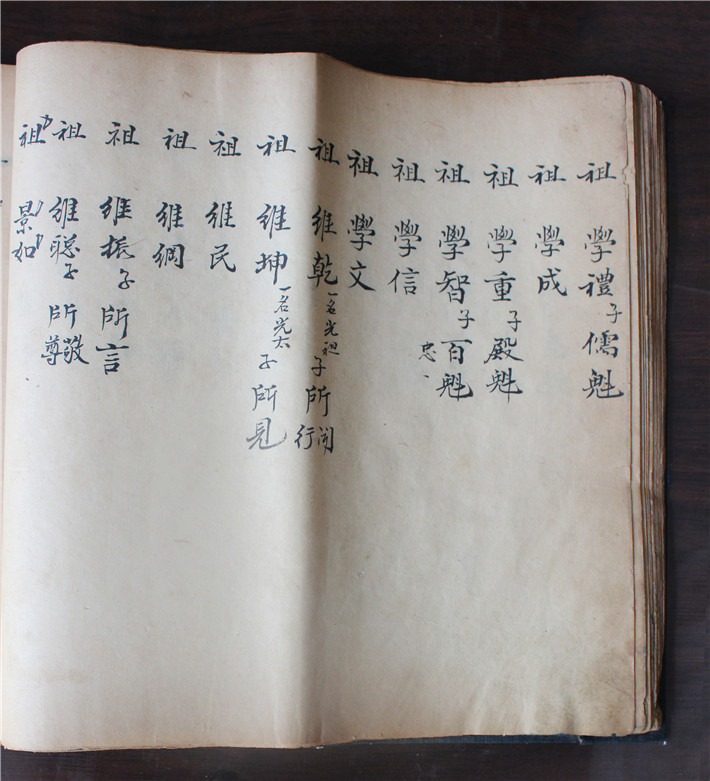 祖 學禮 子 儒魁
祖 學成
祖 學重 子 殿魁
祖 學智 子 百魁 忠
祖 學信
祖 學文
祖 維乾 一名光祖 子 所聞 行
祖 維坤 一名光大 子 所見
祖 維民
祖 維綱
祖 維振 子 所言
祖 維聰 子 所敬 尊
祖 景如